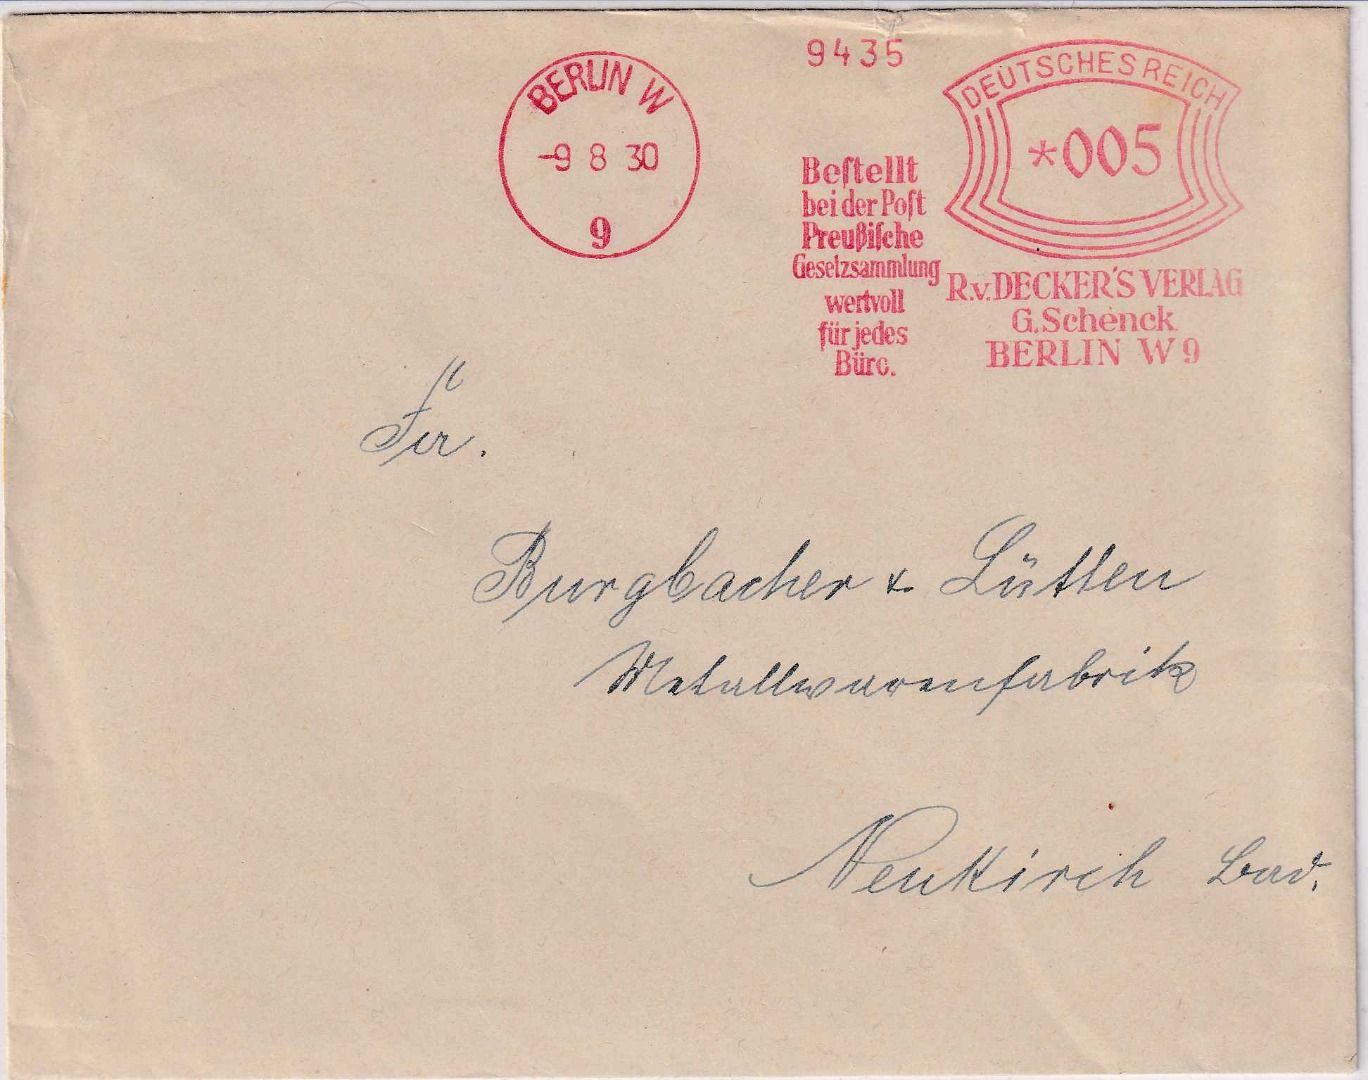 BERLIN W
-9 8 30
9
9435
DEUTSCHES REICH
*005
Beſtellt
bei der Poſt
Preußiſche
Geſetzsammlung
wertvoll
für jedes
Büro.
R.v.DECKER'S VERLAG
G.Schenck
BERLIN W 9
Fa.
Burgbacher & Lütten
Metallwarenfabrik
Neukirch Bad.